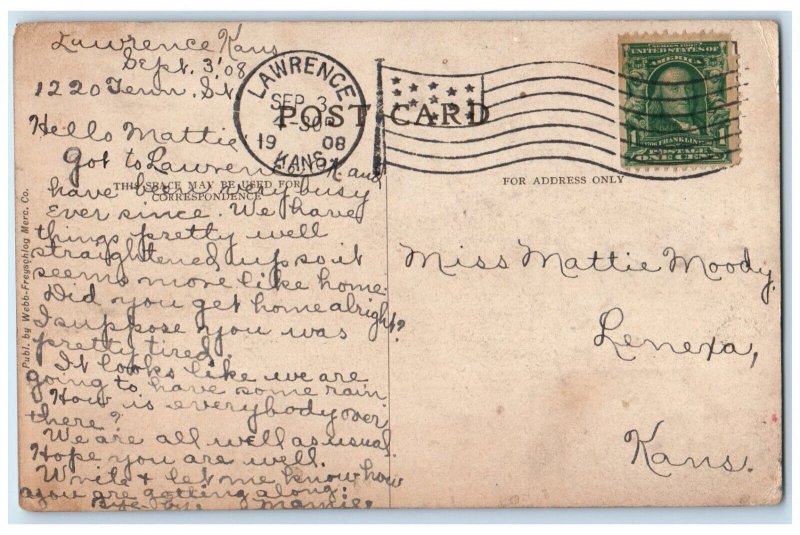 Lawrence Kans
Sept. 3, '08
1220 Tenn. St.
Hello Mattie
Got to Lawrence and
have been very busy
ever since. We have
things pretty well
straightened up so it
seems more like home.
Did you get home alright?
I suppose you was
pretty tired.
It looks like we are
going to have some rain.
How is everybody over
there?
We are all well as usual.
Hope you are well.
Write & let me know how
you are getting along.
Bye-bye. Mamie
LAWRENCE
SEP 3
1908
KANS.
POST CARD
THIS SPACE MAY BE USED FOR
CORRESPONDENCE
FOR ADDRESS ONLY
Publ. by Webb-Freyschlag Merc. Co.
SERIES 1902
UNITED STATES OF
AMERICA
FRANKLIN
POSTAGE
1 ONE CENT 1
Miss Mattie Moody.
Lenexa,
Kans.